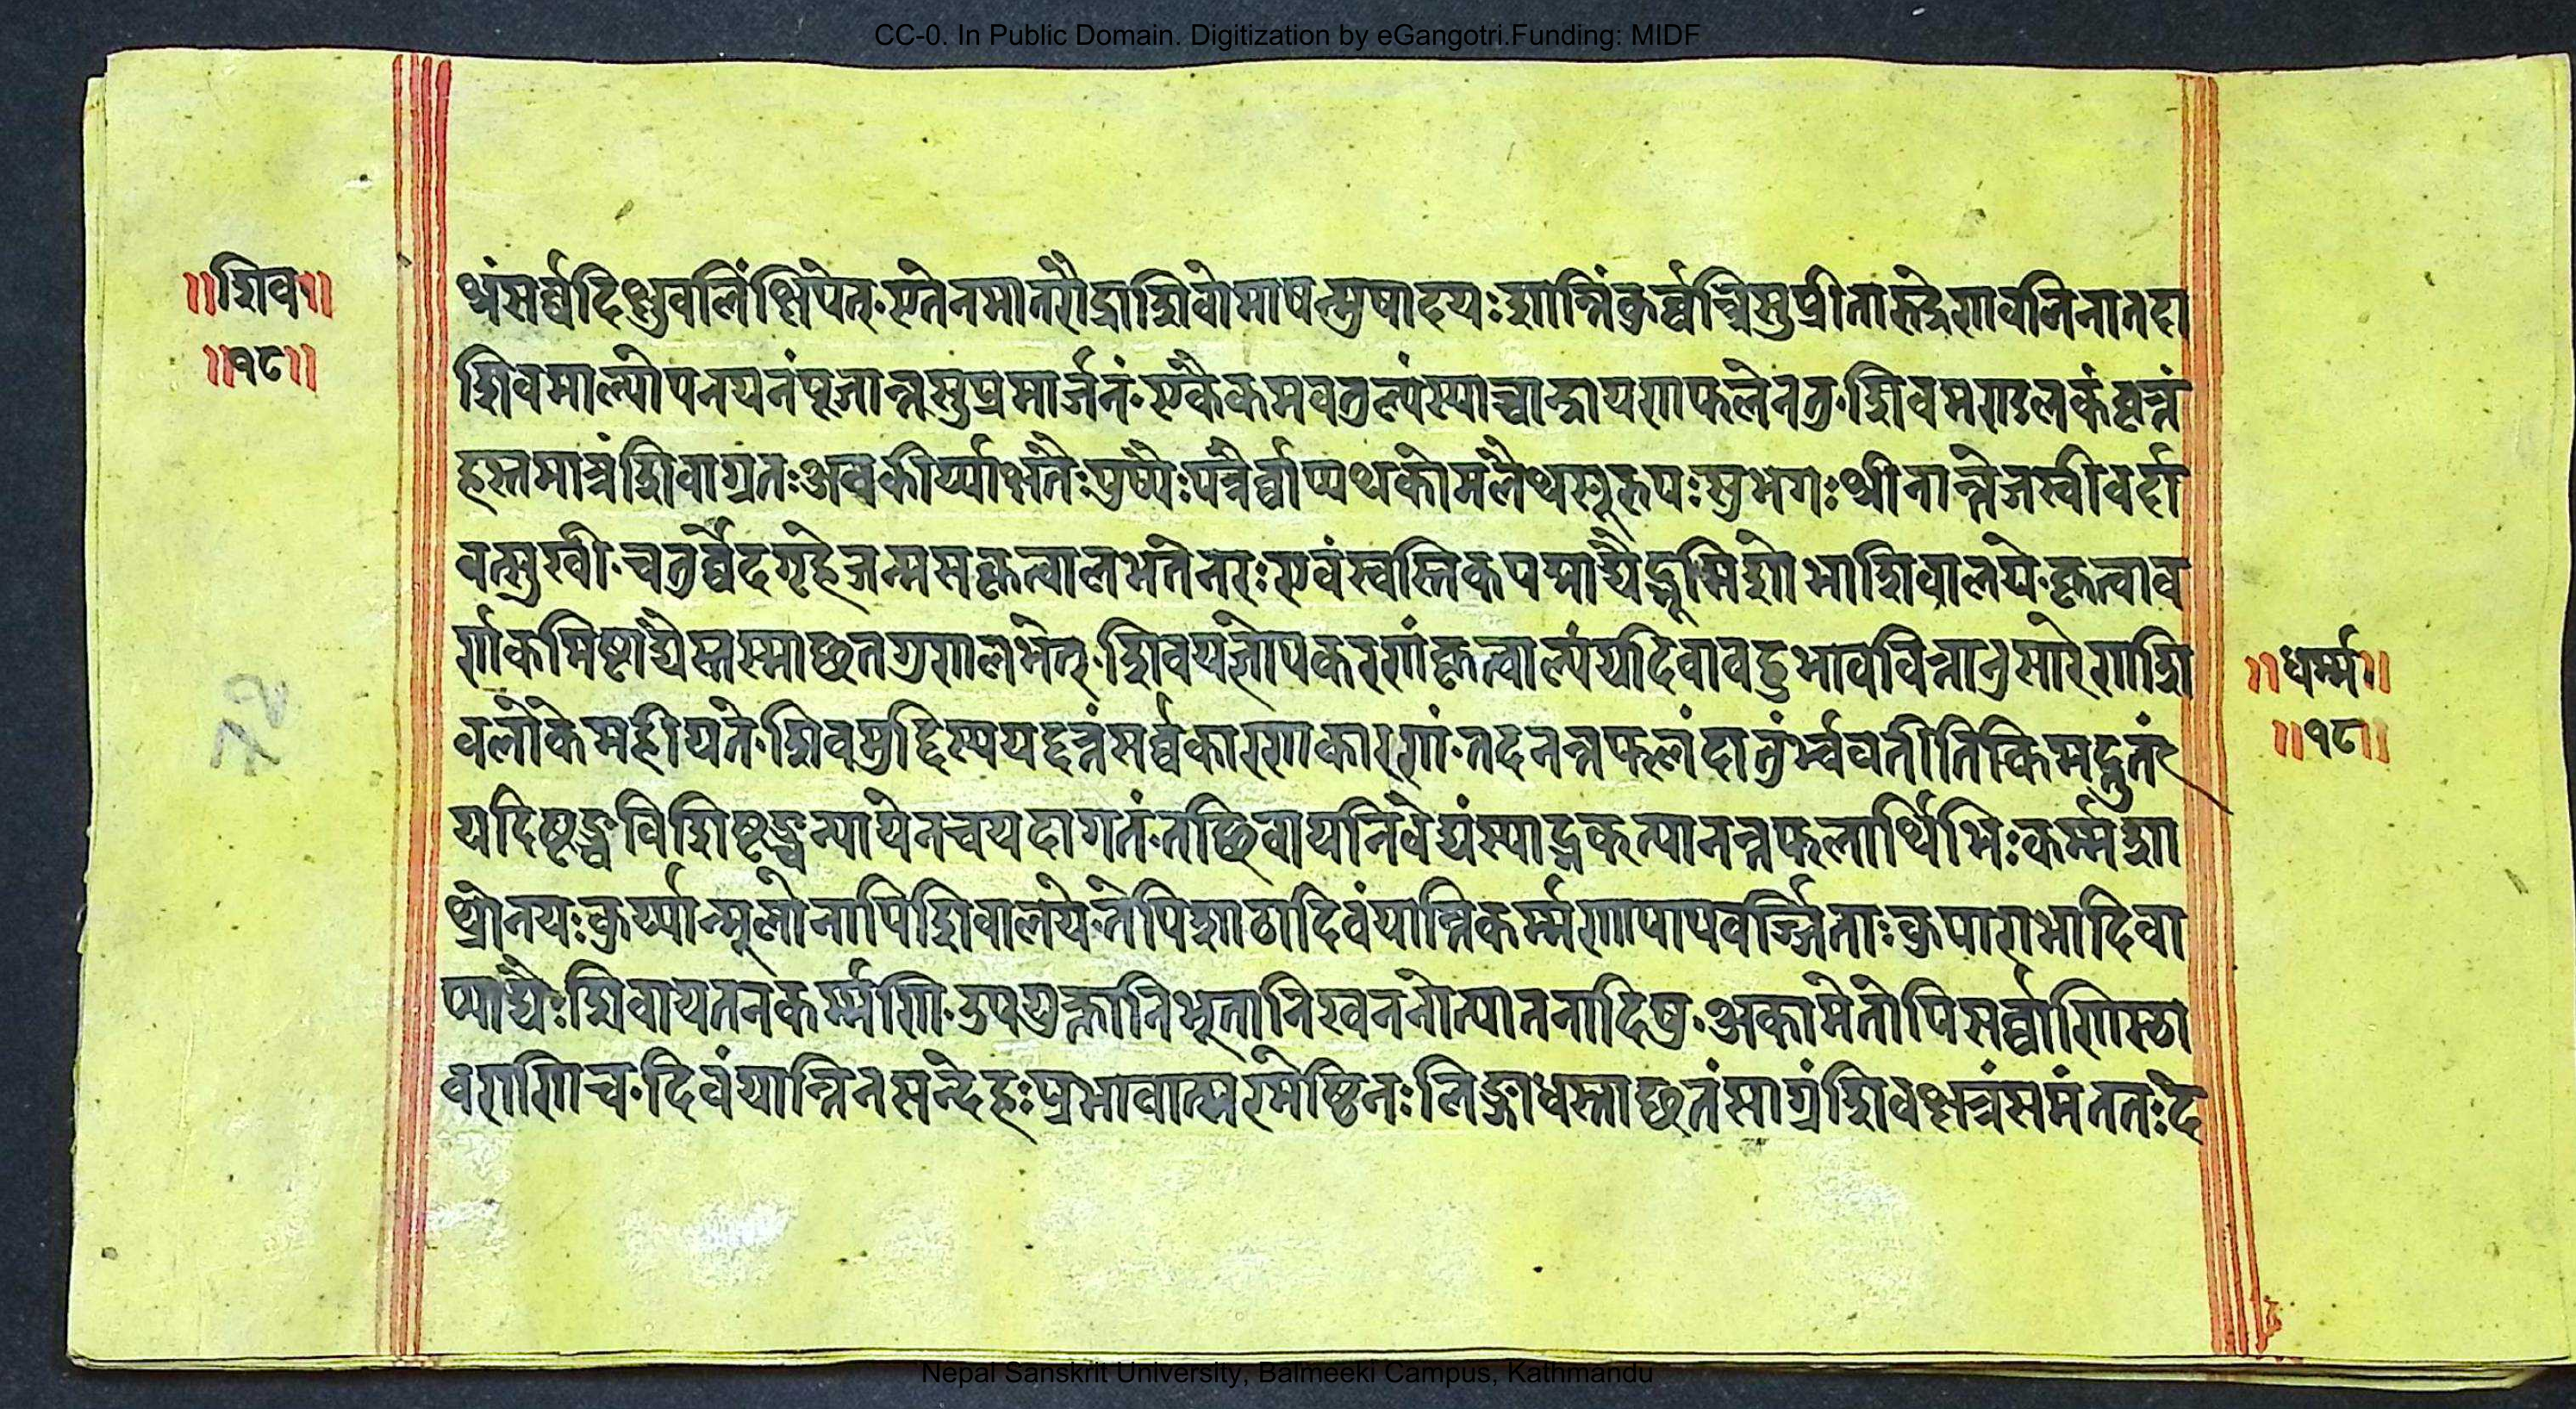 CC-0. In Public Domain. Digitization by eGangotri.Funding: MIDF
॥शिव॥
॥१८॥
र्थंसर्व्वदिक्षुवलिंक्षिपेत्·एतेनमातरौद्राशिवोमाषत्प्रुषादयः शान्तिंकुर्व्वन्तिसुप्रीतारुद्रेणवलिनातदा
शिवमाल्योपनयनंपूजान्तसुप्रमार्जनं·एकैकमवतुल्यंस्याच्चान्द्रायणफलेनतु·शिवमण्डलकंवृत्तं
हस्तमात्रंशिवाग्रतःअवकीर्य्याक्षतैःपुष्पैःपत्रैर्व्वाप्यथकोमलैथसुरूपःसुभगःश्रीनान्तेजस्वीवर्दा
वत्सुखी·चतुर्व्वेदगृहेजन्मसकृत्वालभतेनरःएवंस्वस्तिकपद्माद्यैर्द्भूमिशोभाशिवालये·कृत्वाव
र्णकमिष्टाद्यैस्तस्माछतगुणालभेत्·शिवयज्ञोपकरणंकृत्वाल्पंयदिवावहुभाववित्तानुसारेणशि
वलोकेमहीयते·शिवमुद्दिस्ययद्दत्तंसर्व्वकारणकारणं·तदनन्तफलंदातुंर्भ्भवतीतिकिमद्भुतं
यदिष्टञ्चविशिष्टञ्चन्यायेनचयदागतं·तछिवायनिवेद्यंस्याद्भक्त्यानन्तफलार्थिभिःकर्म्मशा
थ्रोनयःकुर्य्यान्मूलोनापिशिवालये·तेपिशाठादिवंयान्तिकर्म्मणापापवर्ज्जिताःकुपाराभादिवा
प्याद्यैःशिवायतनकर्म्मणि·उपयुक्तानिभूतानिखननोत्पातनादिषु·अकामेतोपिसर्व्वाणिस्था
वराणिच·दिवंयान्तिनसन्देहःप्रभावात्परमेष्ठिनःलिङ्गाधस्ताछतंसाग्रंशिवक्षत्रंसमंततःदे
॥धर्म्म॥
॥१८॥
Nepal Sanskrit University, Balmeeki Campus, Kathmandu